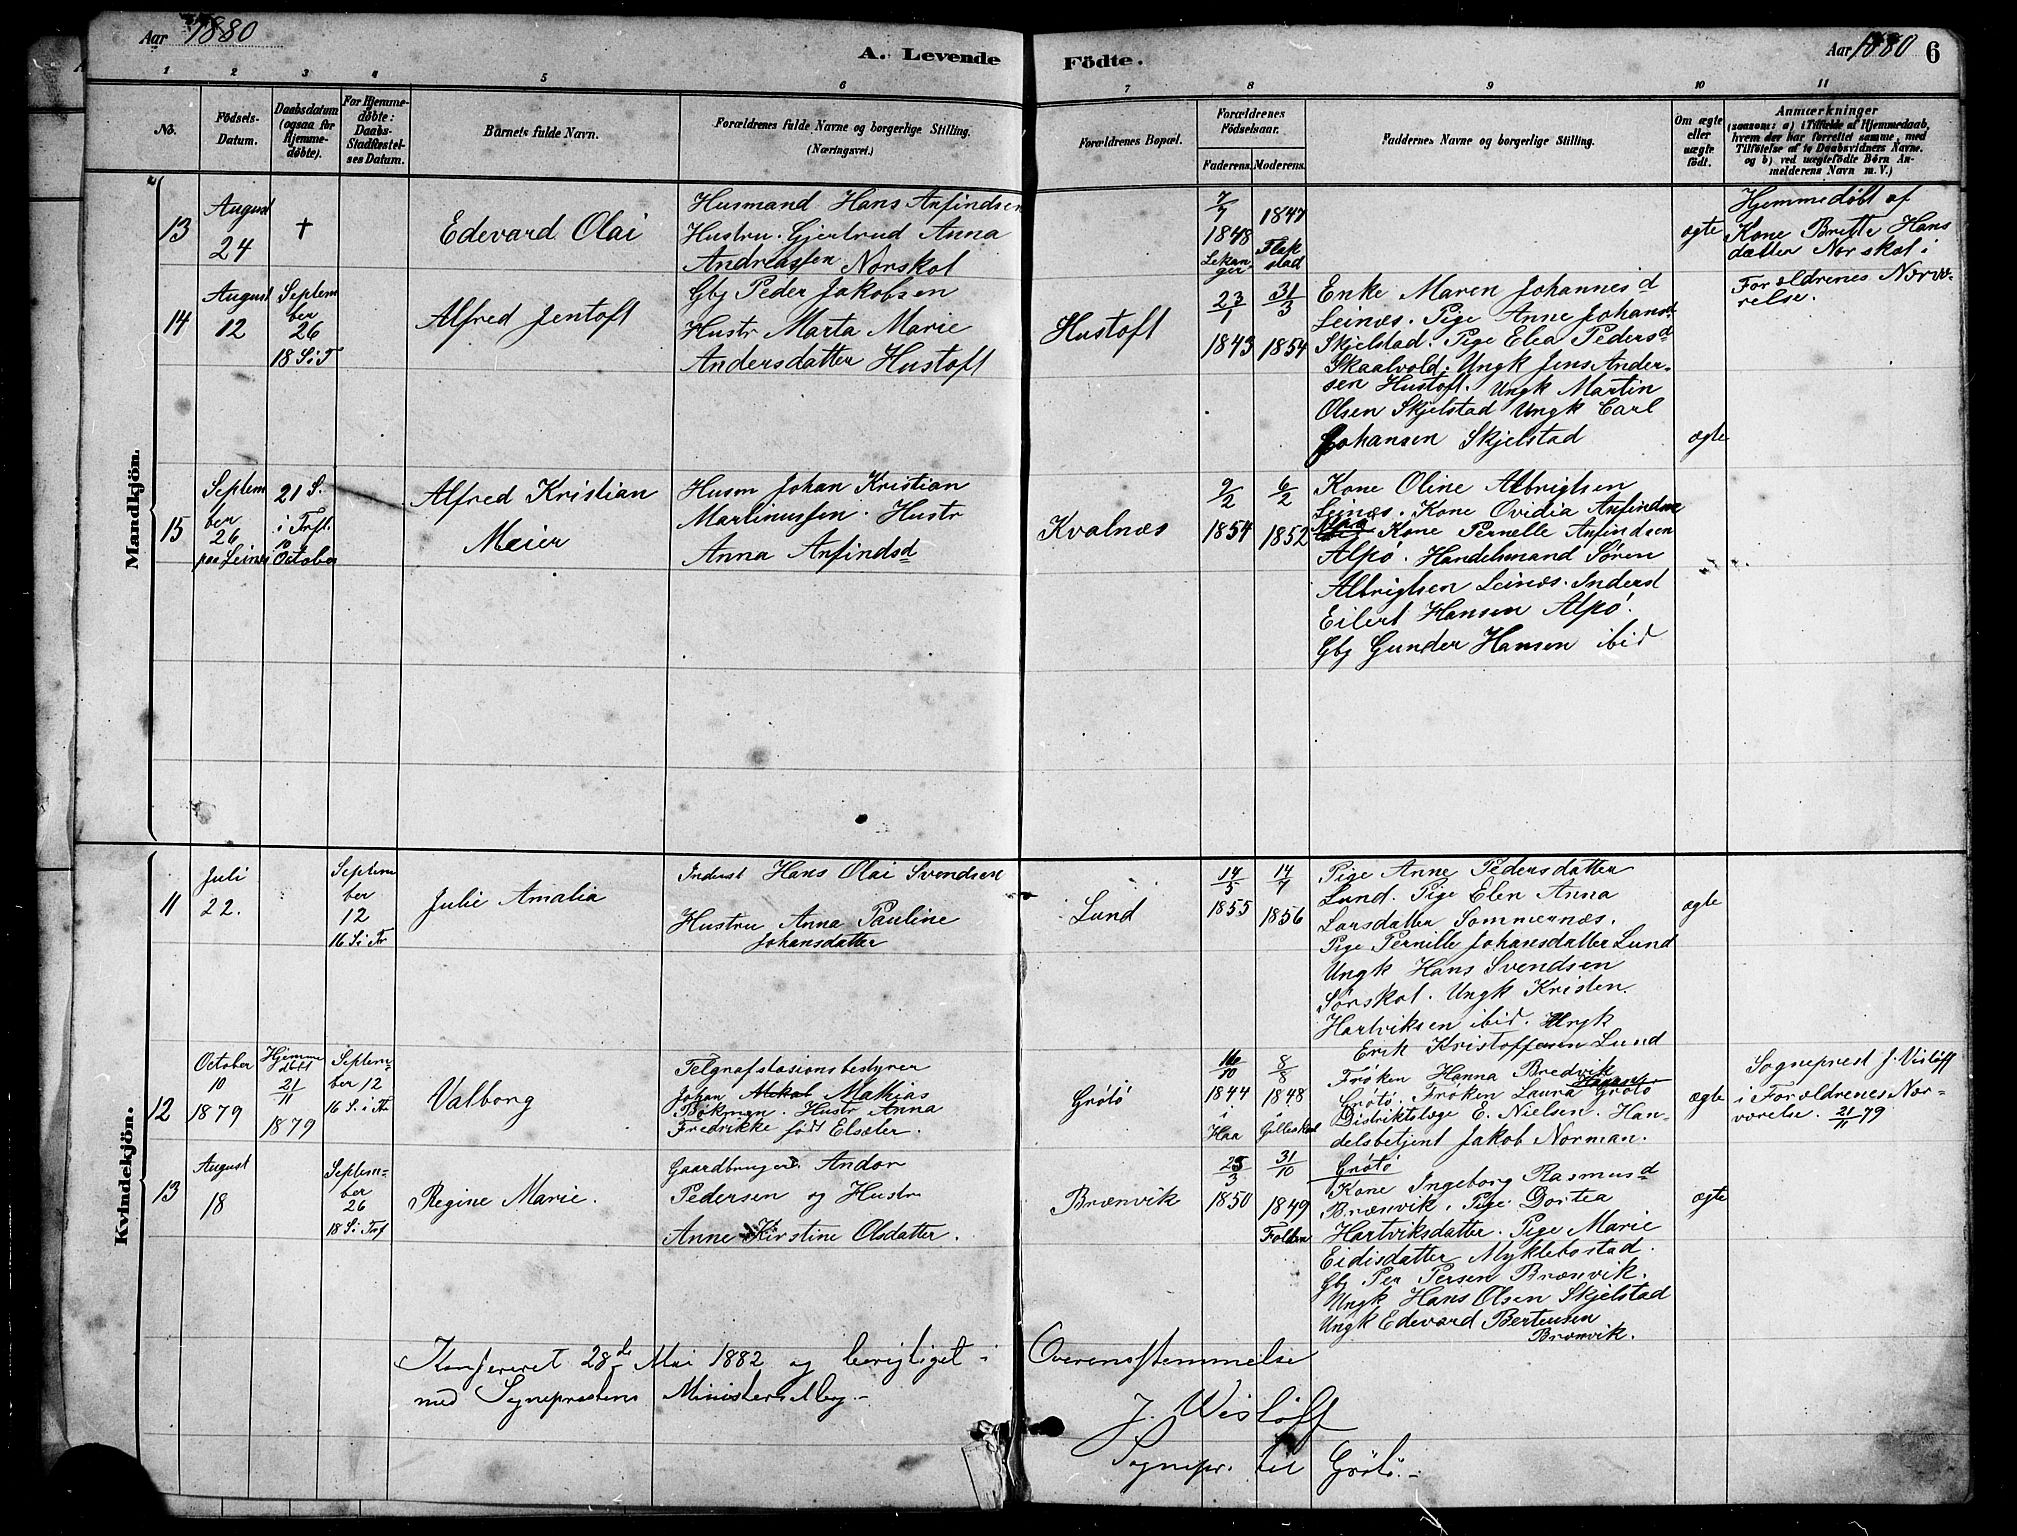 Aar 1880
A. Levende
Födte.
Aar 1880 6
1 2 3 4 5 6 7 8 9 10 11
No.
Födsels-
Datum.
Daabsdatum
(ogsaa for
Hjemme-
døbte).
For Hjemme-
døbte:
Daabs-
Stadfæstel-
ses Datum.
Barnets fulde Navn.
Forældrenes fulde Navne og borgerlige Stilling.
(Næringsvei.)
Forældrenes Bopæl.
Forældrenes
Födselsaar.
Faderens. Moderens.
Faddernes Navne og borgerlige Stilling.
Om ægte
eller
uægte
födt.
Anmærkninger
(saasom: a) i Tilfælde af Hjemmedaab,
hvem der har forrettet samme, med
Tilföielse af to Daabsvidners Navne.
og b) ved uægtefödte Börn An-
melderens Navn m. V.)
Mandkjön.
13
August
24
†
Edevard Olai
Husmand Hans Anfindsen
Hustru Gjertrud Anna
Andreassen Norskot
7/7
1848
Lekan-
ger
1847
Flak
stad
ægte
Hjemmedøbt af
Kone Britte Hans
datter Norskot i
Forældrenes Nærvæ-
relse.
14
August
12
Septem
ber
26
18 S. i T
Alfred Jentoft
Gbj Peder Jakobsen
Hustr Marta Marie
Andersdatter Hustoft
Hustoft
23/1
1843
31/3
1854
Enke Maren Johannesd
Leinæs. Pige Anne Johansd
Skjelstad. Pige Elea Pedersd
Skaalvold. Ungk Jens Ander-
sen Hustoft. Ungk Martin
Olsen Skjelstad Ungk Carl
Johansen Skjelstad
ægte
15
Septem
ber
26
paa Leines
21 S.
i Trft.
October
Alfred Kristian
Meier
Husm Johan Kristian
Martinussen. Hustr
Anna Anfindsd
Kvalnæs
9/2
1854
6/2
1852
Kone Oline Albrigtsen
Leinæs. Kone Ovidia Anfindsen
Kone Pernelle Anfindsen
Alpø. Handelsmand Søren
Albrigtsen Leinæs. Inderst
Eilert Hansen Alpø.
Gbj Gunder Hansen ibid
Kvindekjön.
11
Juli
22.
Septem
ber
12
16 S. i Tr
Julie Amalia
Inderst Hans Olai Svendsen
Hustru Anna Pauline
Johansdatter
Lund
14/5
1855
14/7
1856
Pige Anne Pedersdatter
Lund. Pige Elen Anna
Larsdatter Sommernæs.
Pige Pernille Johansdatter Lund
Ungk Hans Svendsen
Sørskot. Ungk Kristen
Hartviksen ibid. Ungk
Erik Kristoffersen Lund
ægte
12
October
10
1879
Hjemme
døbt
21/11
1879
Septem-
ber 12
16 S. i Tr.
Valborg
Telgrafstasionsbestyrer
Johan Mathias
Bökman. Hustr Anna
Fredrikke født Elsæter.
Grøtø
16/10
1844
i
Haa
8/8
1848
Gilleskaal
Frøken Hanna Bredvik
Grøtø. Frøken Laura Grøtø
Distriktslæge E. Nielsen. Han-
delsbetjent Jakob Norman.
Grøtø
ægte
Sogneprest J. Visløff
i Forældrenes Nær-
værelse. 21/11 79
13
August
18
Septem-
ber
26
18 S. i Trf
Regine Marie.
Gaardbruger Andor
Pedersen og Hustr
Anne Kirstine Olsdatter.
Brænvik
25/3
1850
31/10
1849
Folden
Kone Ingeborg Rasmusd
Brænvik. Pige Dortea
Hartviksdatter. Pige Marie
Eidisdatter Myklebostad.
Gbj. Per Persen Brænvik.
Ungk Hans Olsen Skjelstad
Ungk Edevard Berteusen
Brænvik.
ægte
Konfereret 28de Mai 1882 og berigtiget i Overensstemmelse
med Sogneprestens Ministerialbog.-
J. Wisløff
Sognepr. til Grøtø.-